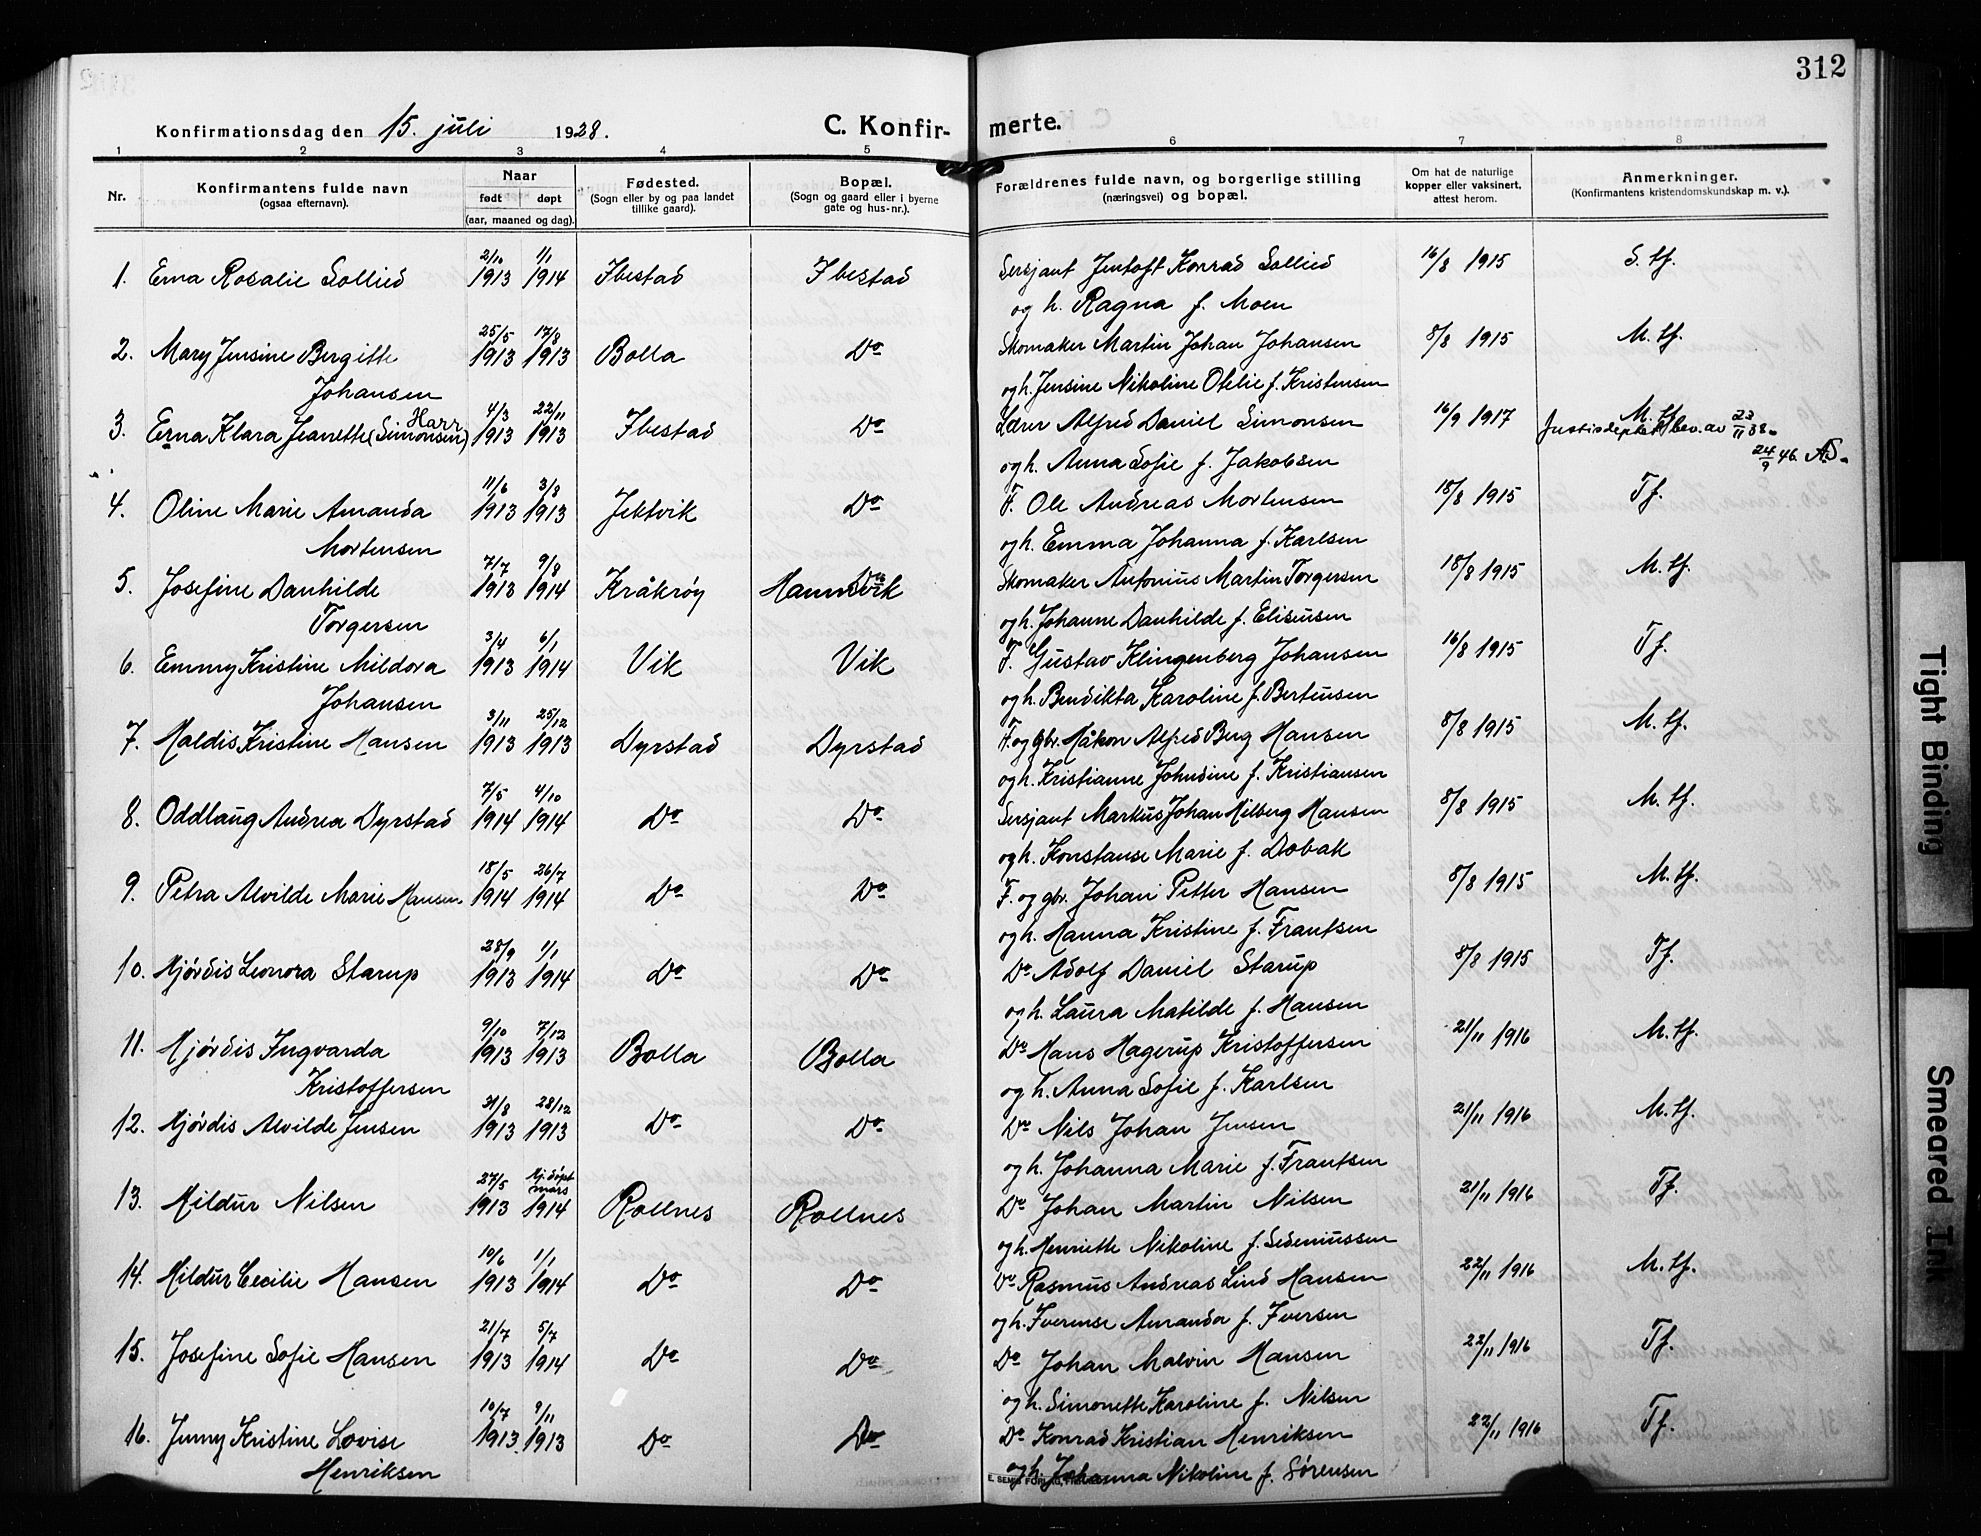 312
Konfirmationsdag den 15. juli 1928.
C. Konfir- merte.
1 2 3 4 5 6 7 8
Nr.
Konfirmantens fulde navn
(ogsaa efternavn).
Naar
født døpt
(aar, maaned og dag).
Fødested.
(Sogn eller by og paa landet
tillike gaard).
Bopæl.
(Sogn og gaard eller i byerne
gate og hus-nr.).
Forældrenes fulde navn, og borgerlige stilling
(næringsvei) og bopæl.
Om hat de naturlige
kopper eller vaksinert,
attest herom.
Anmerkninger.
(Konfirmantens kristendomskundskap m. v.).
2/10 1/1
1. Erna Rosalie Sollied 1913 1914 Ibestad Ibestad Sersjant Jentoft Konrad Sollied 16/8 1915 S. tf.
og h. Ragna f. Moen
25/5 17/8
2. Mary Jensine Bergitte 1913 1913 Bolla Do Skomaker Martin Johan Johansen 8/8 1915 M. tf.
Johansen og h. Jensine Nikoline Otelie f. Kristensen
4/3 22/11
Harr
3. Erna Klara Jeanette (Simonsen) 1913 1913 Ibestad Do Lærer Alfred Daniel Simonsen 16/9 1917 M. tf.
Justisdeptet bev. av 23/11 38.
24/9 46. AS.
og h. Anna Sofie f. Jakobsen
11/6 3/8
4. Oline Marie Amanda 1913 1913 Jektvik Do F. Ole Andreas Mortensen 18/8 1915 Tf.
Mortensen og h. Emma Johanna f. Karlsen
7/7 9/8
5. Josefine Danhilde 1913 1914 Kråkrøy Hamnvik Skomaker Antonius Martin Torgersen 18/8 1915 M. tf.
Torgersen og h. Johanne Danhilde f. Eliseusen
3/4 6/1
6. Emmy Kristine Mildora 1913 1914 Vik Vik F. Gustav Klingenberg Johansen 16/8 1915 Tf.
Johansen og h. Bendikta Karoline f. Berteusen
3/11 25/12
7. Haldis Kristine Hansen 1913 1913 Dyrstad Dyrstad F. og gbr. Håkon Alfred Berg Hansen 8/8 1915 M. tf.
og h. Kristianne Johndine f. Kristiansen
7/5 4/10
8. Oddlaug Andrea Dyrstad 1914 1914 Do Do Sersjant Markus Johan Hilberg Hansen 8/8 1915 M. tf.
og h. Konstanse Marie f. Dobak
18/5 26/7
9. Petra Alvilde Marie Hansen 1914 1914 Do Do F. og gbr. Johan Petter Hansen 8/8 1915 M. tf.
og h. Hanna Kristine f. Frantsen
28/9 1/1
10. Hjørdis Leonora Starup 1913 1914 Do Do Do Adolf Daniel Starup 8/8 1915 Tf.
og h. Laura Matilde f. Hansen
9/10 7/12
11. Hjørdis Ingvarda 1913 1913 Bolla Bolla Do Hans Hagerup Kristoffersen 21/11 1916 M. tf.
Kristoffersen og h. Anna Sofie f. Karlsen
31/8 28/12
12. Hjørdis Alvilde Jensen 1913 1913 Do Do Do Nils Johan Jensen 21/11 1916 M. tf.
og h. Johanna Marie f. Frantsen
27/5 Hj. døpt
mars
13. Hildur Nilsen 1913 1914 Rollnes Rollnes Do Johan Martin Nilsen 21/11 1916 Tf.
og h. Henriette Nikoline f. Sedeniussen
10/6 1/1
14. Hildur Cecilie Hansen 1913 1914 Do Do Do Rasmus Andreas Lind Hansen 22/11 1916 M. tf.
og h. Iverense Amanda f. Iversen
21/7 5/7
15. Josefine Sofie Hansen 1913 1914 Do Do Do Johan Malvin Hansen 22/11 1916 Tf.
og h. Simonette Karoline f. Nilsen
10/7 9/11
16. Jenny Kristine Lovise 1913. 1913 Do Do Do Konrad Kristian Henriksen 22/11 1916 Tf.
Henriksen og h. Johanna Nikoline f. Sørensen
E. SEMS FORLAG,
Tight Binding
Smeared Ink